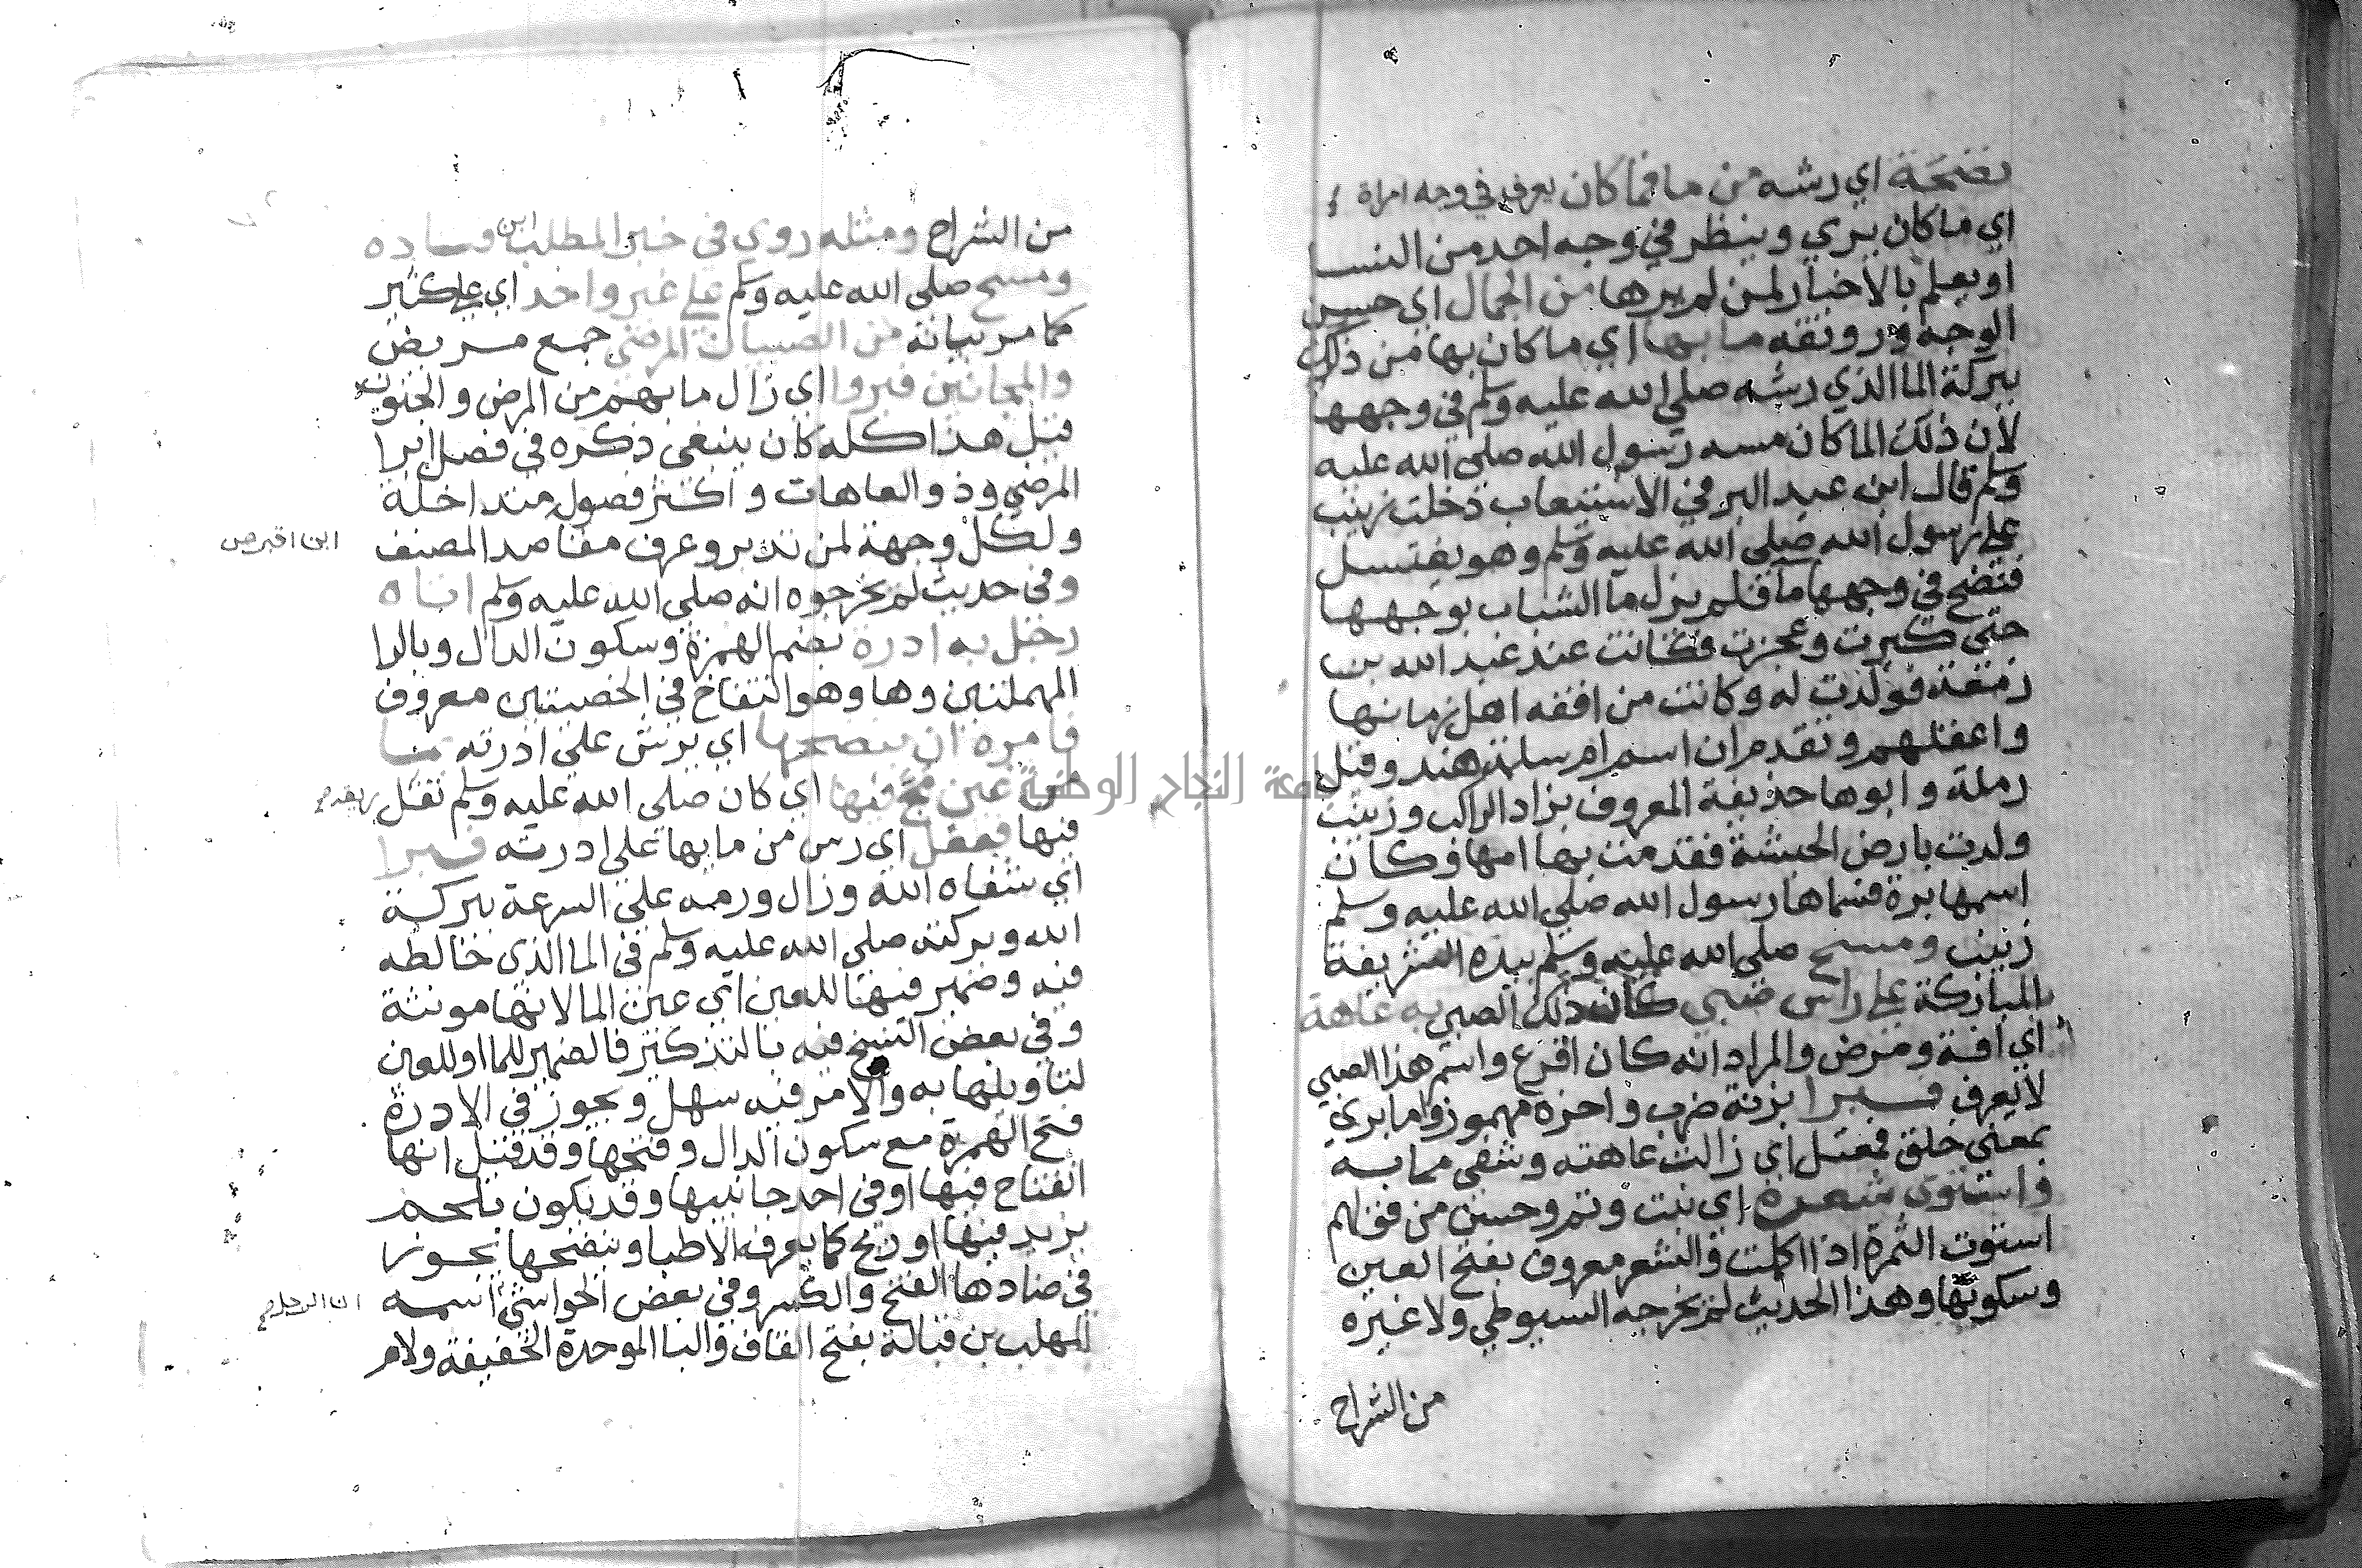 نضحة اي رشه من ما فما كان يعرف في وجه امراة
اي ما كان يري وينظر في وجه احد من النسا
او يعلم بالاخبار لمن لم يرها من الجمال اي حسن
الوجه ورونقه ما بها اي ما كان بها من ذلك
ببركة الما الذي رشه صلي الله عليه وسلم في وجهها
لان ذلك الما كان مسه رسول الله صلي الله عليه
وسلم قال ابن عبد البر في الاستيعاب دخلت زينب
علي رسول الله صلي الله عليه وسلم وهو يغتسل
فنضح في وجهها ما فلم يزل ما الشباب بوجهها
حتي كبرت وعجزت فكانت عند عبد الله بن
زمعة فولدت له وكانت من افقه اهل زمانها
واعقلهم وتقدم ان اسم ام سلمة هند وقيل
رملة وابوها حذيفة المعروف بزاد الراكب وزينب
ولدت بارض الحبشة فقدمت بها امها وكان
اسمها برة فسماها رسول الله صلي الله عليه وسلم
زينب ومسح صلي الله عليه وسلم بيده الشريفة
المباركة علي راس صبي كان ذلك الصبي به عاهة
اي افة ومرض والمراد انه كان اقرع واسم هذا الصبي
لا يعرف فبرا بزنة ضرب واخره مهموز واما بري
بمعني خلق فمعتل اي زالت عاهته وشفي مما به
واستوي شعره اي نبت وتم وحسن من قولهم
استوت الثمرة اذا اكلت والشعر معروف بفتح العين
وسكونها وهذا الحديث لم يخرجه السيوطي ولا غيره
من الشراح
من الشراح ومثله روي في خبر المطلب ابن قباده
ومسح صلي الله عليه وسلم علي غير واحد اي علي كثير
كما مر بيانه من الصبيان المرضي جمع مريض
والمجانين فبروا اي زال ما بهم من المرض والجنون
قيل هذا كله كان ينبغي ذكره في فصل ابرا
المرضي وذو العاهات واكثر فصوله متداخلة
ولكل وجهة لمن تدبر وعرف مقاصد المصنف
ابن اقبرص
وفي حديث لم يخرجوه انه صلي الله عليه وسلم اتاه
رجل به ادرة بضم الهمزة وسكون الدال وبالرا
المهملتين وها وهو انتفاخ في الخصيتين معروف
فامره ان ينضحها اي يرش علي ادرته بما
من عين مج فيها اي كان صلي الله عليه وسلم تفل
فيها ففعل اي رش من مايها علي ادرته فبرا
اي شفاه الله وزال ورمه علي السرعة ببركة
الله وبركته صلي الله عليه وسلم في الما الذي خالطه
فيه وضمير فيها للعين اي عين الما لانها مونثة
وفي بعض النسخ فيه بالتذكير فالضمير للما او للعين
لتاويلها به والامر فيه سهل ويجوز في الادرة
فتح الهمزة مع سكون الدال وفتحها وقد قيل انها
انفتاح فيها او في احد جانبيها وقد يكون بلحم
يزيد فيها او ريح كما يعرفه الاطبا وينضحها يجوز
في ضادها الفتح والكسر وفي بعض الحواشي اسمه
المهلب بن قبالة بفتح القاف والبا الموحدة الخفيفة ولام
جامعة النجاح الوطنية